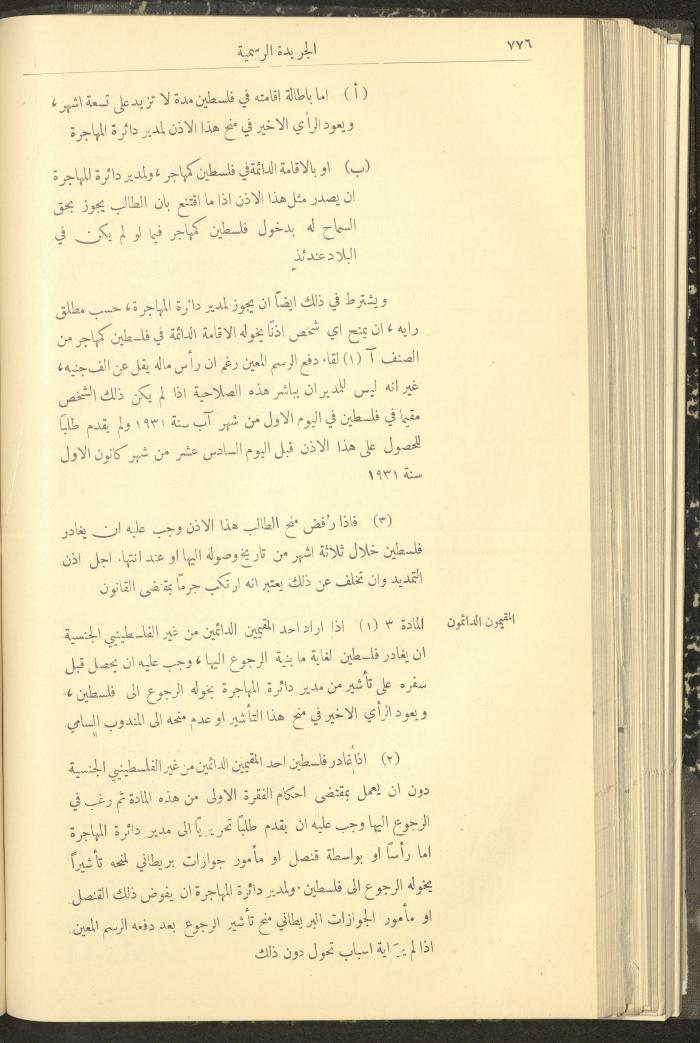 ٧٧٦
الجريدة الرسمية
(أ) اما باطالة اقامته في فلسطين مدة لا تزيد على تسعة اشهر ،
ويعود الرأي الاخير في منح هذا الاذن لمدير دائرة المهاجرة
(ب) او بالاقامة الدائمة في فلسطين كمهاجر ، ولمدير دائرة المهاجرة
ان يصدر مثل هذا الاذن اذا ما اقتنع بان الطالب يجوز بحق
السماح له بدخول فلسطين كمهاجر فيما لو لم يكن في
البلاد عندئذ
ويشترط في ذلك ايضاً ان يجوز لمدير دائرة المهاجرة ، حسب مطلق
رايه ، ان يمنح اي شخص اذناً يخوله الاقامة الدائمة في فلسطين كمهاجر من
الصنف آ (١) لقاء دفع الرسم المعين رغم ان رأس ماله يقل عن الف جنيه ،
غير انه ليس للمدير ان يباشر هذه الصلاحية اذا لم يكن ذلك الشخص
مقيما في فلسطين في اليوم الاول من شهر آب سنة ١٩٣١ ولم يقدم طلباً
للحصول على هذا الاذن قبل اليوم السادس عشر من شهر كانون الاول
سنة ١٩٣١
(٣) فاذا رُفض منح الطالب هذا الاذن وجب عليه ان يغادر
فلسطين خلال ثلاثة اشهر من تاريخ وصوله اليها او عند انتهاء اجل اذن
التمديد وان تخلف عن ذلك يعتبر انه ارتكب جرماً بمقتضى القانون
المقيمون الدائمون
المادة ٣ (١) اذا اراد احد المقيمين الدائمين من غير الفلسطينيي الجنسية
ان يغادر فلسطين لغاية ما بنية الرجوع اليها ، وجب عليه ان يحصل قبل
سفره على تأشير من مدير دائرة المهاجرة يخوله الرجوع الى فلسطين ،
ويعود الرأي الاخير في منح هذا التأشير او عدم منحه الى المندوب السامي
(٢) اذا غادر فلسطين احد المقيمين الدائمين من غير الفلسطينيي الجنسية
دون ان يعمل بمقتضى احكام الفقرة الاولى من هذه المادة ثم رغب في
الرجوع اليها وجب عليه ان يقدم طلباً تحريرياً الى مدير دائرة المهاجرة
اما رأساً او بواسطة قنصل او مأمور جوازات بريطاني لمنحه تأشيراً
يخوله الرجوع الى فلسطين . ولمدير دائرة المهاجرة ان يفوض ذلك القنصل
او مأمور الجوازات البريطاني منح تأشير الرجوع بعد دفعه الرسم المعين
اذا لم يرَ اية اسباب تحول دون ذلك